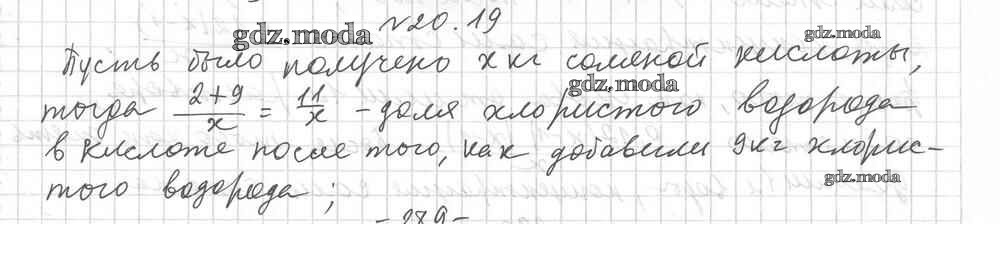 №20.19
Пусть было получено x кг соляной кислоты,
тогда (2+9)/x = 11/x - доля хлористого водорода
в кислоте после того, как добавили 9кг хлорис-
того водорода;
gdz.moda
gdz.moda
gdz.moda
gdz.moda